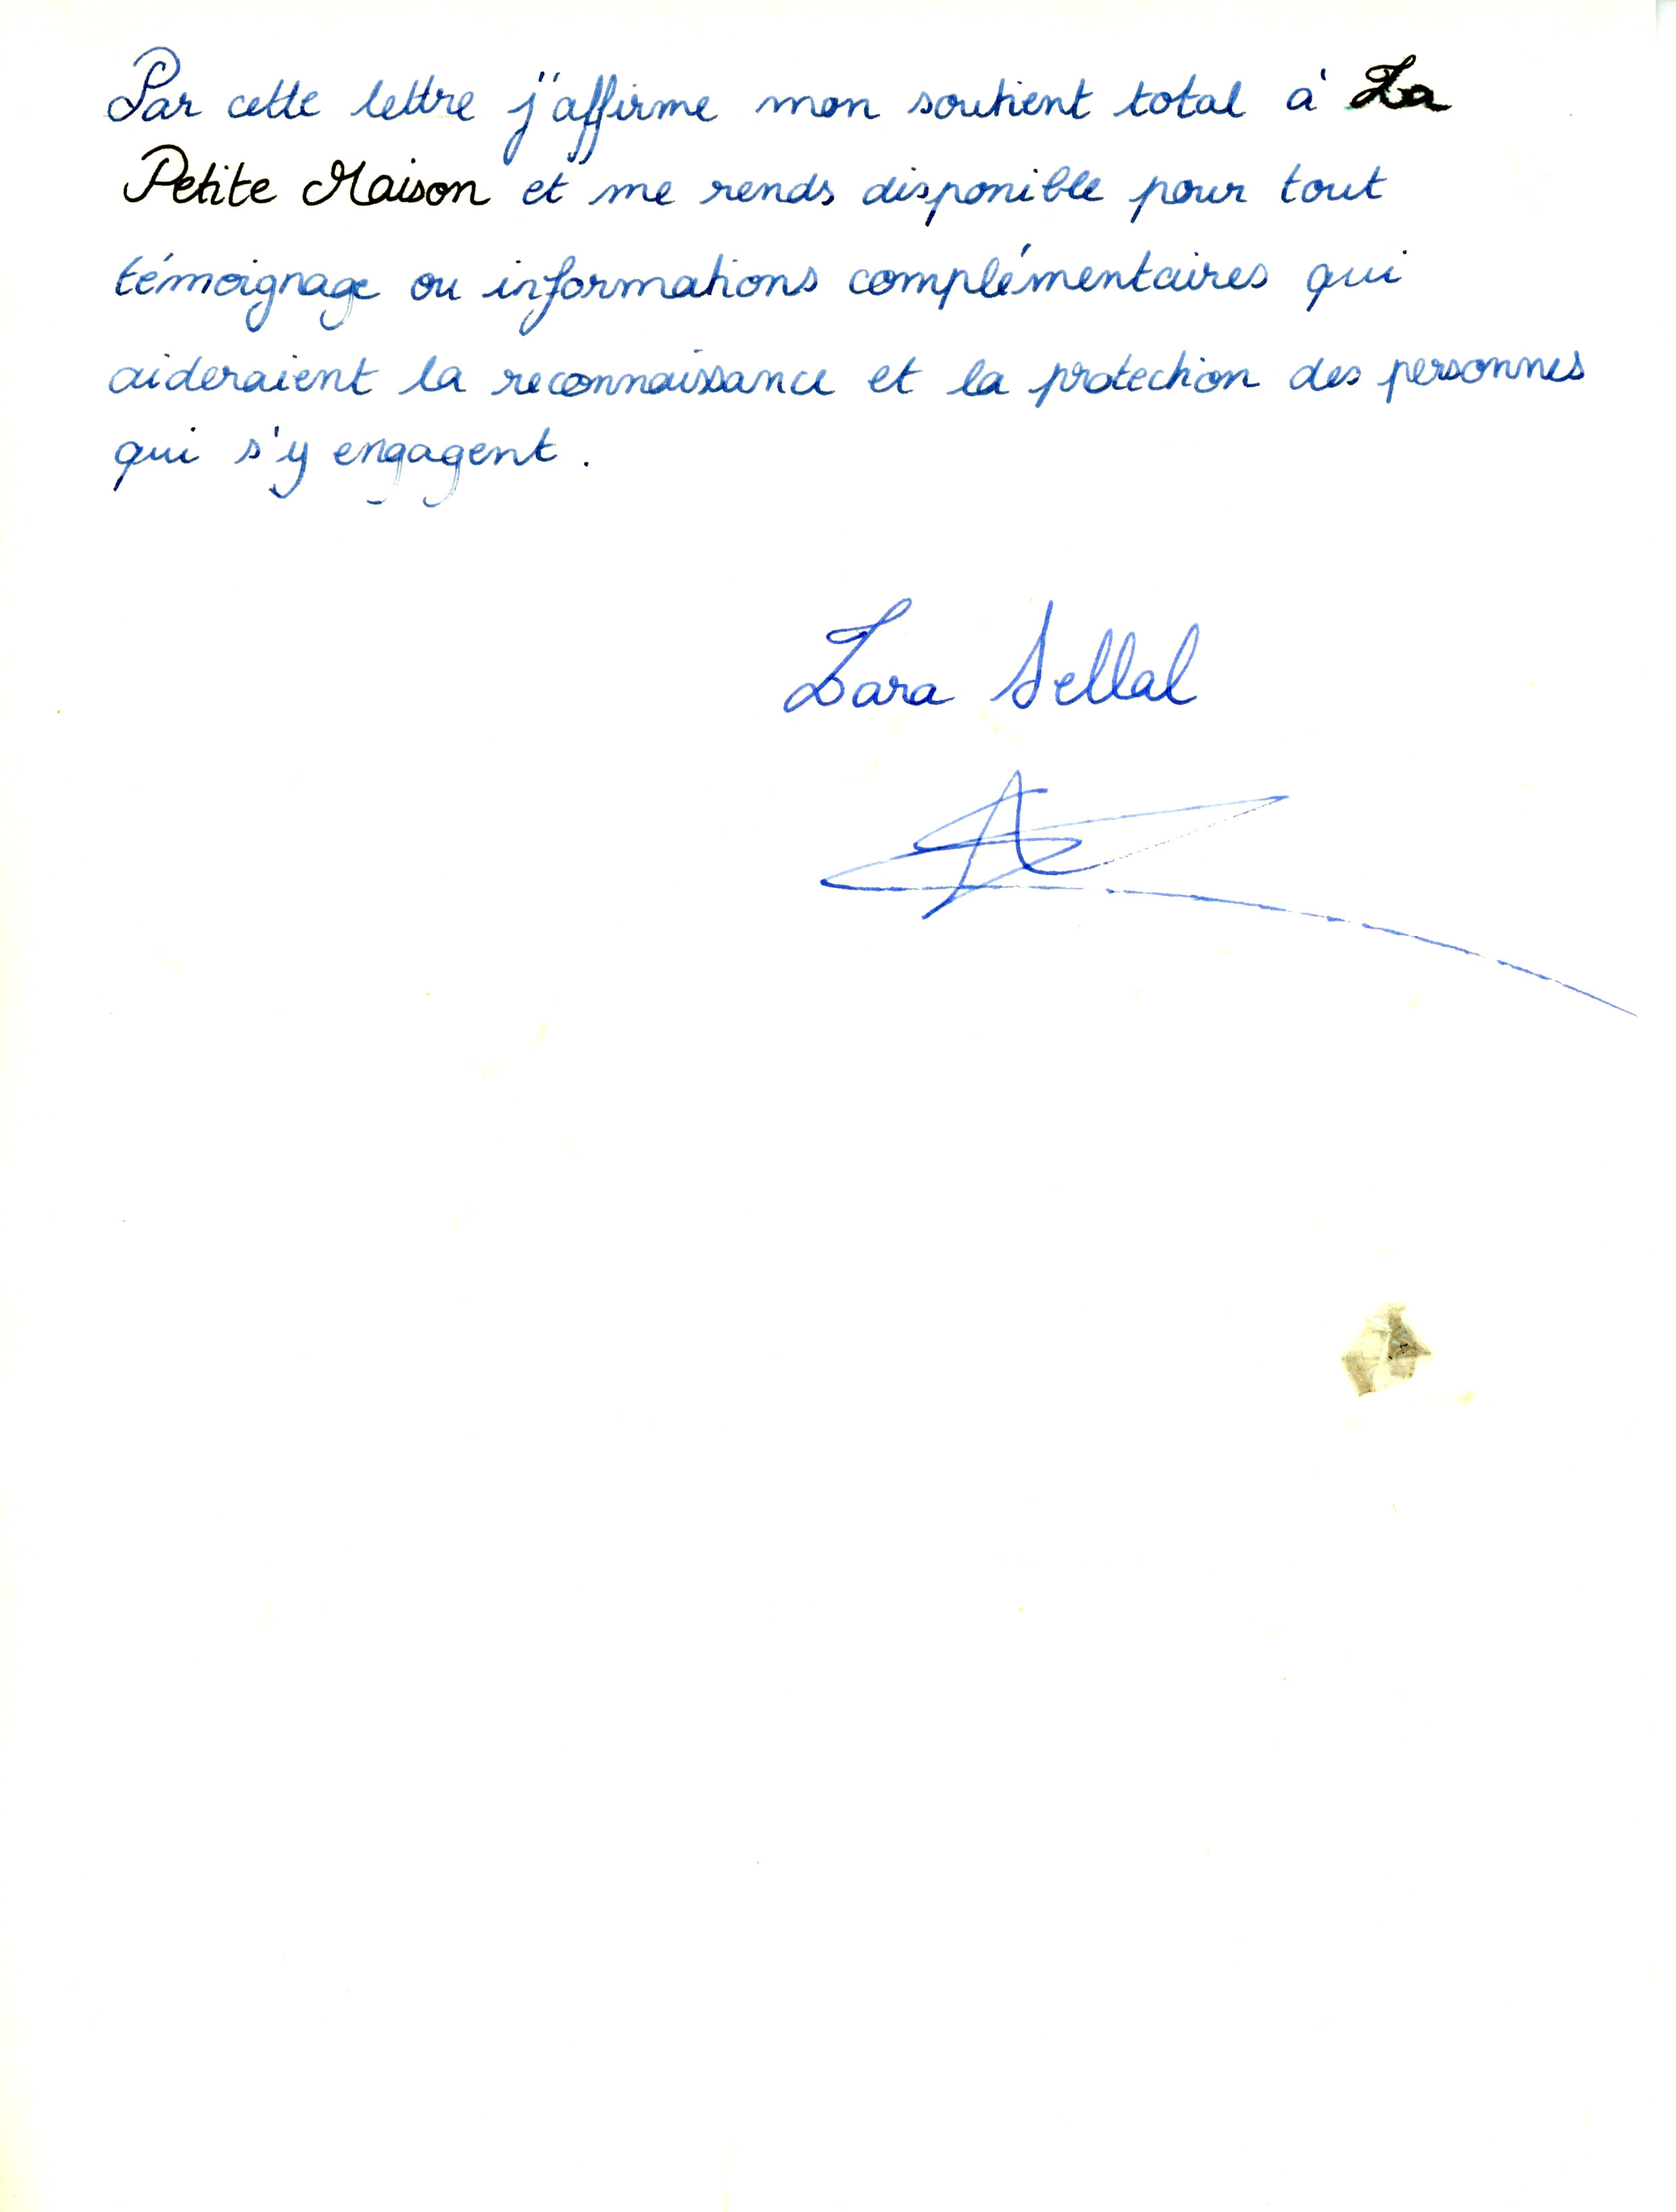 Par cette lettre j'affirme mon soutient total à La
Petite Maison et me rends disponible pour tout
témoignage ou informations complémentaires qui
aideraient la reconnaissance et la protection des personnes
qui s'y engagent.
Lara Sellal